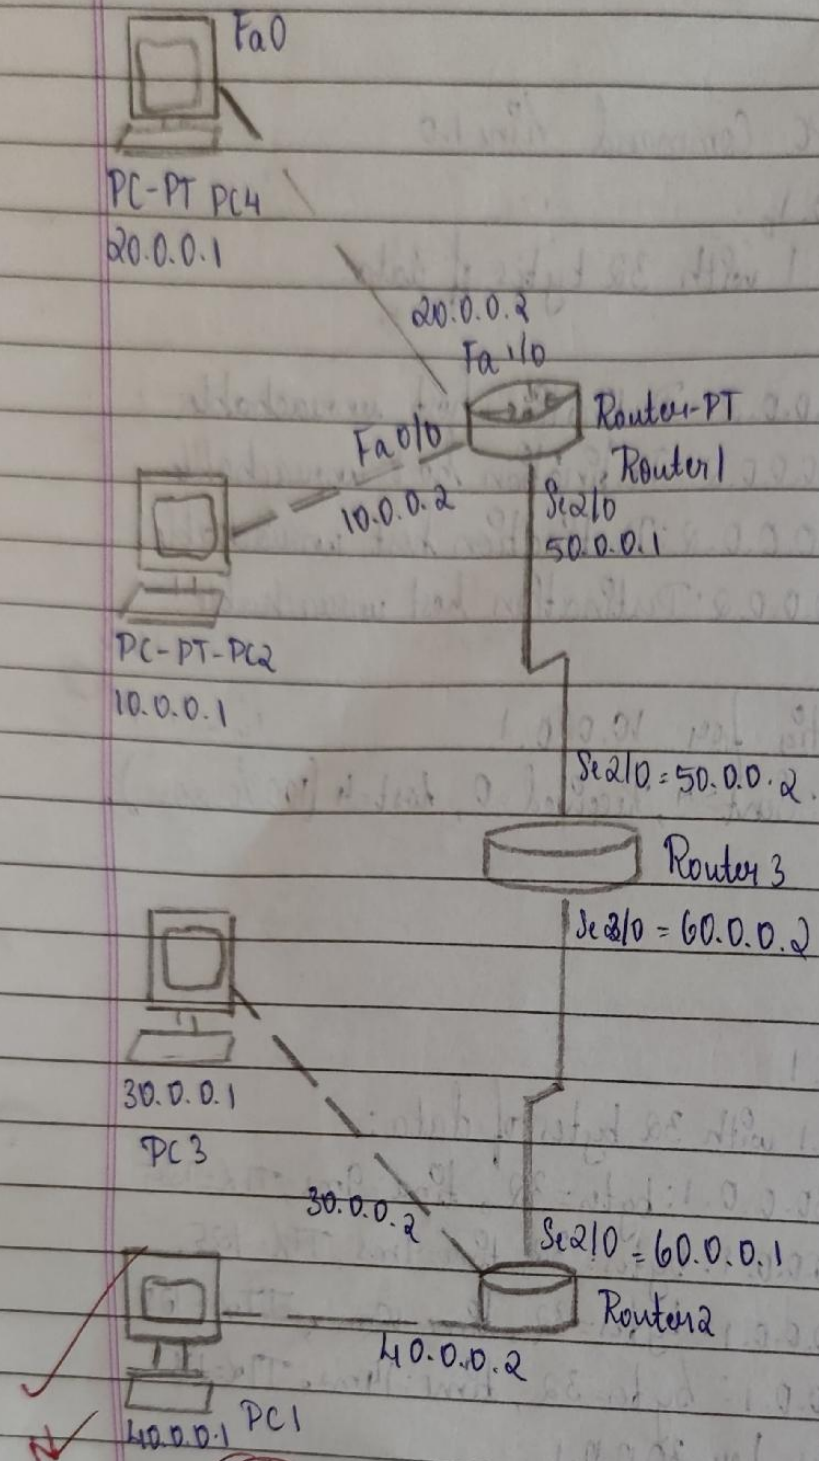 Fa0
PC-PT PC4
20.0.0.1
20.0.0.2
Fa 1/0
Router-PT
Router1
Fa0/0
10.0.0.2
Se2/0
50.0.0.1
PC-PT-PC2
10.0.0.1
Se2/0 = 50.0.0.2.
Router 3
= 60.0.0.2
30.0.0.1
PC3
30.0.0.2
Se2/0 = 60.0.0.1
Router2
40.0.0.2
40.0.0.1 PC1